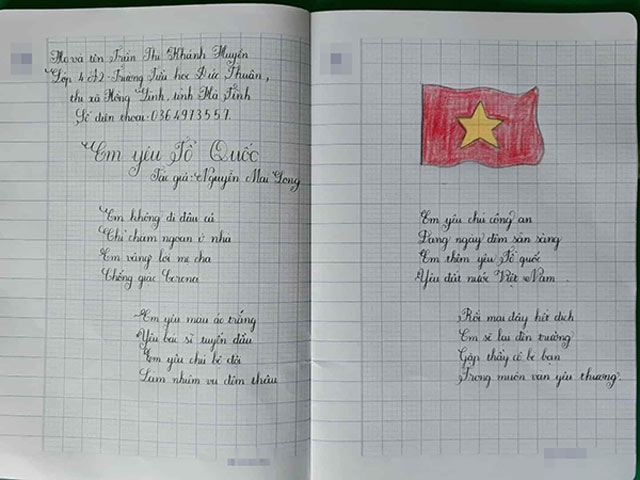 Họ và tên Trần Thị Khánh Huyền
Lớp 4A2 - Trường Tiểu học Đức Thuận,
thị xã Hồng Lĩnh, tỉnh Hà Tĩnh
Số điện thoại: 0364973557.
Em yêu Tổ Quốc
Tác giả: Nguyễn Mai Long
Em không đi đâu cả
Chỉ chăm ngoan ở nhà
Em vâng lời mẹ cha
Chống giặc Corona
Em yêu màu áo trắng
Yêu bác sĩ tuyến đầu
Em yêu chú bộ đội
Làm nhiệm vụ đêm thâu
Em yêu chú công an
Đang ngày đêm sẵn sàng
Em thêm yêu Tổ quốc
Yêu đất nước Việt Nam.
Rồi mai đây hết dịch
Em sẽ lại đến trường
Gặp thầy cô bè bạn
Trong muôn vàn yêu thương.